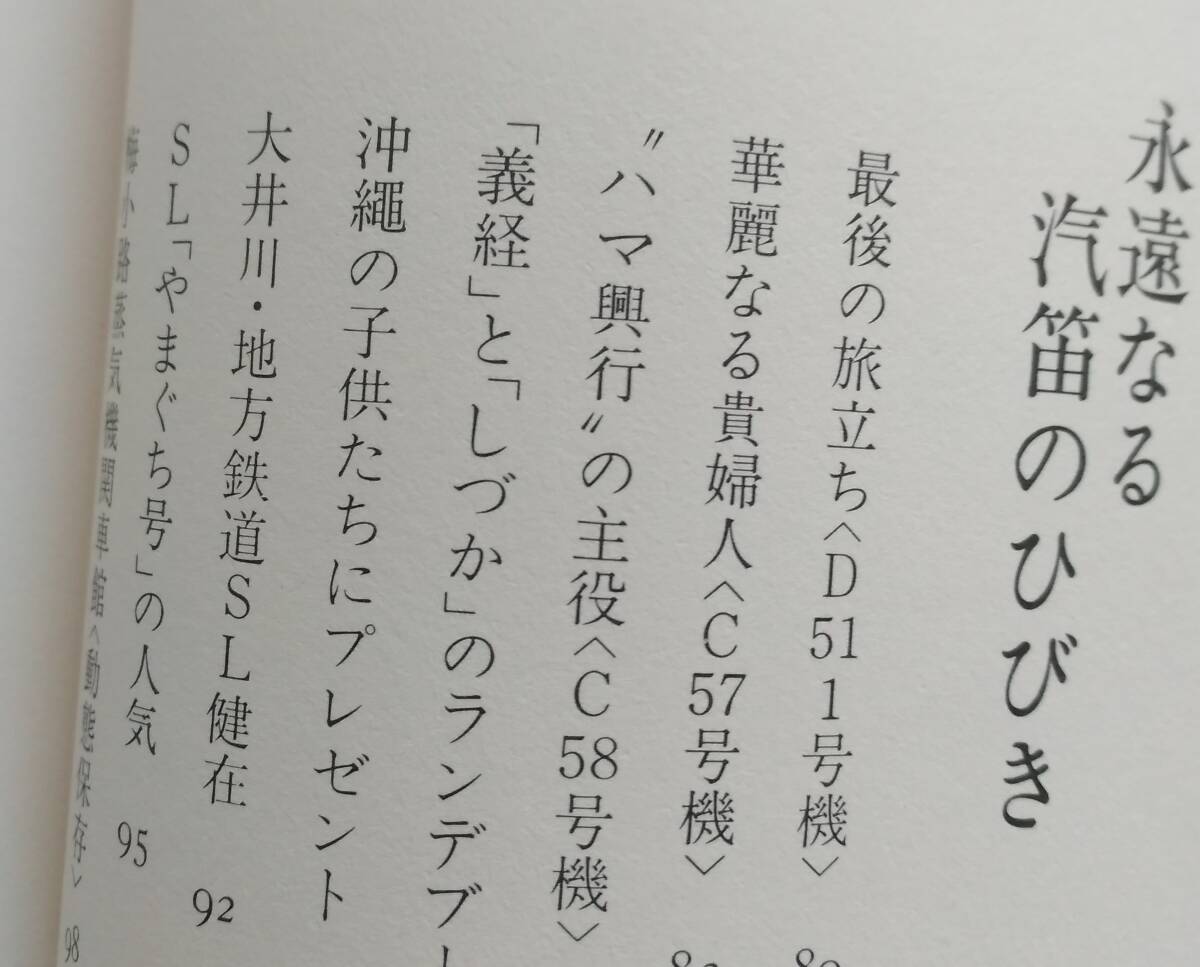 永遠なる
汽笛のひびき
最後の旅立ち〈D51 1号機〉
華麗なる貴婦人〈C57号機〉
〝ハマ興行〟の主役〈C58号機〉
「義経」と「しづか」のランデブー
沖縄の子供たちにプレゼント
大井川・地方鉄道SL健在 92
SL「やまぐち号」の人気 95
梅小路蒸気機関車館〈動態保存〉 98